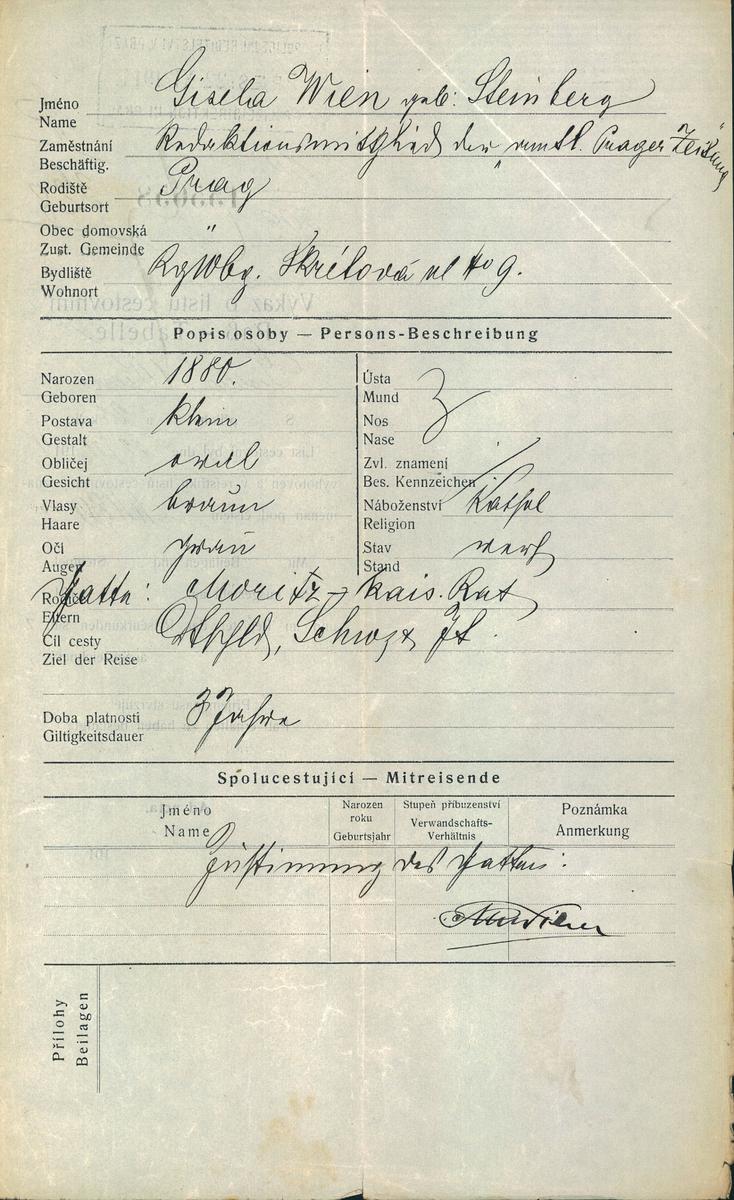 Jméno
Name
Gisela Wien geb: Steinberg
Zaměstnání
Beschäftig.
Redaktionsmitglied der "amtl. Prager Zeitung"
Rodiště
Geburtsort
Prag
Obec domovská
Zust. Gemeinde
"
Bydliště
Wohnort
KglWbg. Skrétová ul No 9.
Popis osoby — Persons-Beschreibung
Narozen
Geboren
1880.
Postava
Gestalt
klein
Obličej
Gesicht
oval
Vlasy
Haare
braun
Oči
Augen
grau
Ústa
Mund
Nos
Nase
Zvl. znamení
Bes. Kennzeichen
Náboženství
Religion
Kathol
Stav
Stand
verh
Rodiče
Eltern
Gatte: Moritz – kais. Rat
Cíl cesty
Ziel der Reise
Dtschld, Schwz &
Doba platnosti
Giltigkeitsdauer
3 Jahre
Spolucestující — Mitreisende
Jméno
Name
Narozen
roku
Geburtsjahr
Stupeň příbuzenství
Verwandschafts-
Verhältnis
Poznámka
Anmerkung
Zustimmung des Gatten:
Přílohy
Beilagen